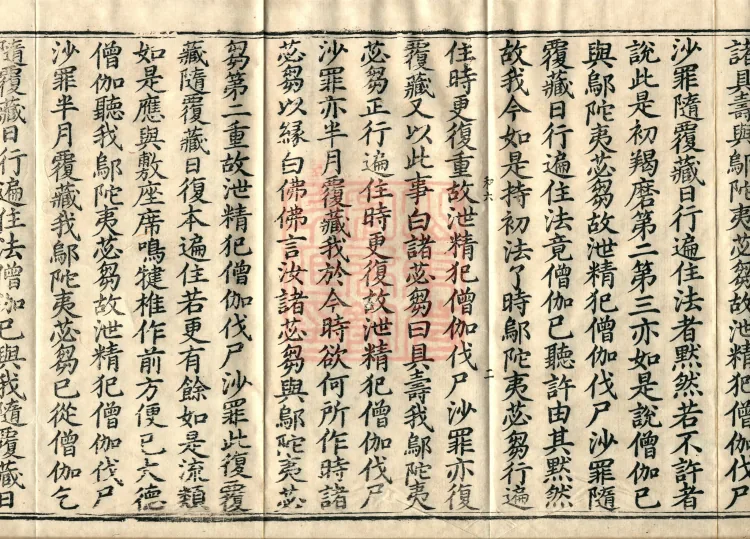 諸具壽與鄔陀夷苾芻故泄精犯僧伽伐尸
沙罪隨覆藏日行遍住法者默然若不許者
說此是初羯磨第二第三亦如是說僧伽已
與鄔陀夷苾芻故泄精犯僧伽伐尸沙罪隨
覆藏日行遍住法竟僧伽已聽許由其默然
故我今如是持初法了時鄔陀夷苾芻行遍
和六
二
住時更復重故泄精犯僧伽伐尸沙罪亦復
覆藏又以此事白諸苾芻曰具壽我鄔陀夷
苾芻正行遍住時更復故泄精犯僧伽伐尸
沙罪亦半月覆藏我於今時欲何所作時諸
苾芻以緣白佛佛言汝諸苾芻與鄔陀夷苾
芻第二重故泄精犯僧伽伐尸沙罪此復覆
藏隨覆藏日復本遍住若更有餘如是流類
如是應與敷座席鳴揵椎作前方便已大德
僧伽聽我鄔陀夷苾芻故泄精犯僧伽伐尸
沙罪半月覆藏我鄔陀夷苾芻已從僧伽乞
隨覆藏日行遍住法僧伽已與我隨覆藏日